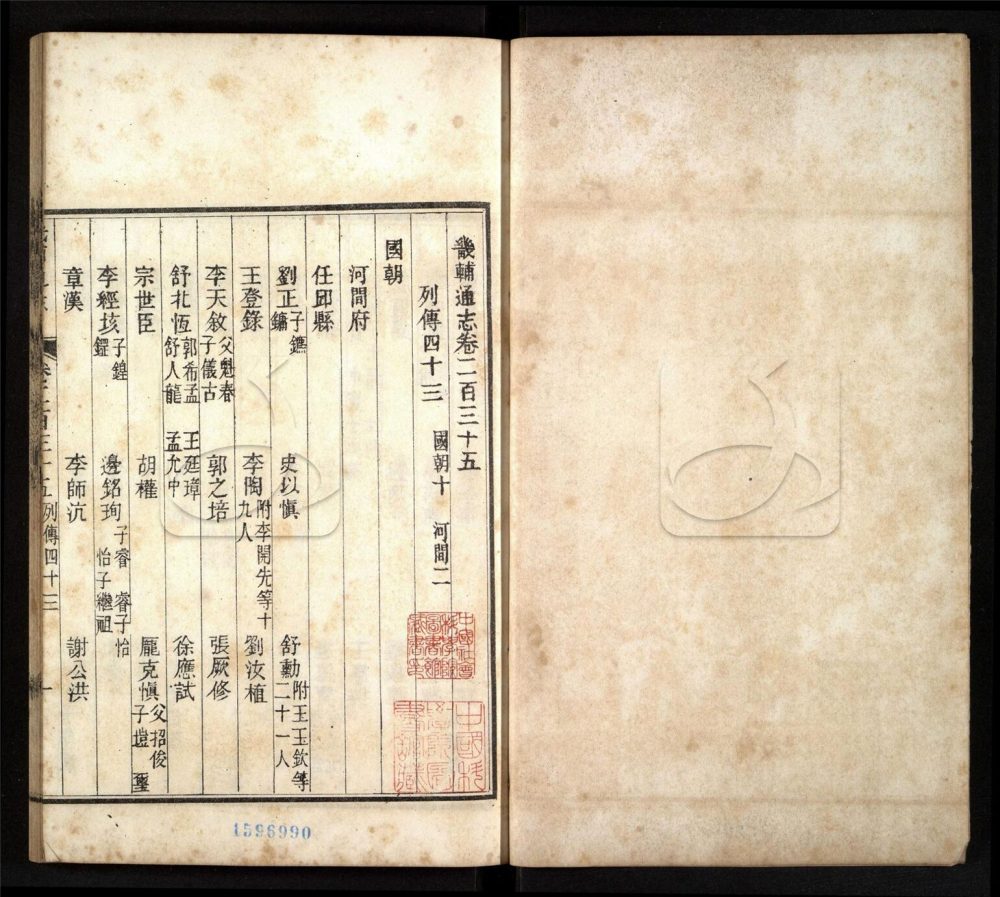 畿輔通志卷二百三十五
列傳四十三　國朝十　河間二
國朝
河間府
任邱縣
劉正子鑣鏞　史以慎　舒勳附王玉欽等二十一人
王登錄　李陶附李開先等十九人　劉汝植
李天敘父魁春子儀古　郭之培　張厥修
舒北恆郭布孟舒人龍　王廷璋孟允中　徐應試
宗世臣　胡權　龐克慎父招俊子塏　璽
李經垓子鍠鑃　邊銘珣子睿　睿子怡　怡子繼祖
章漢　李師沆　謝公洪
列傳四十三
一
1596990